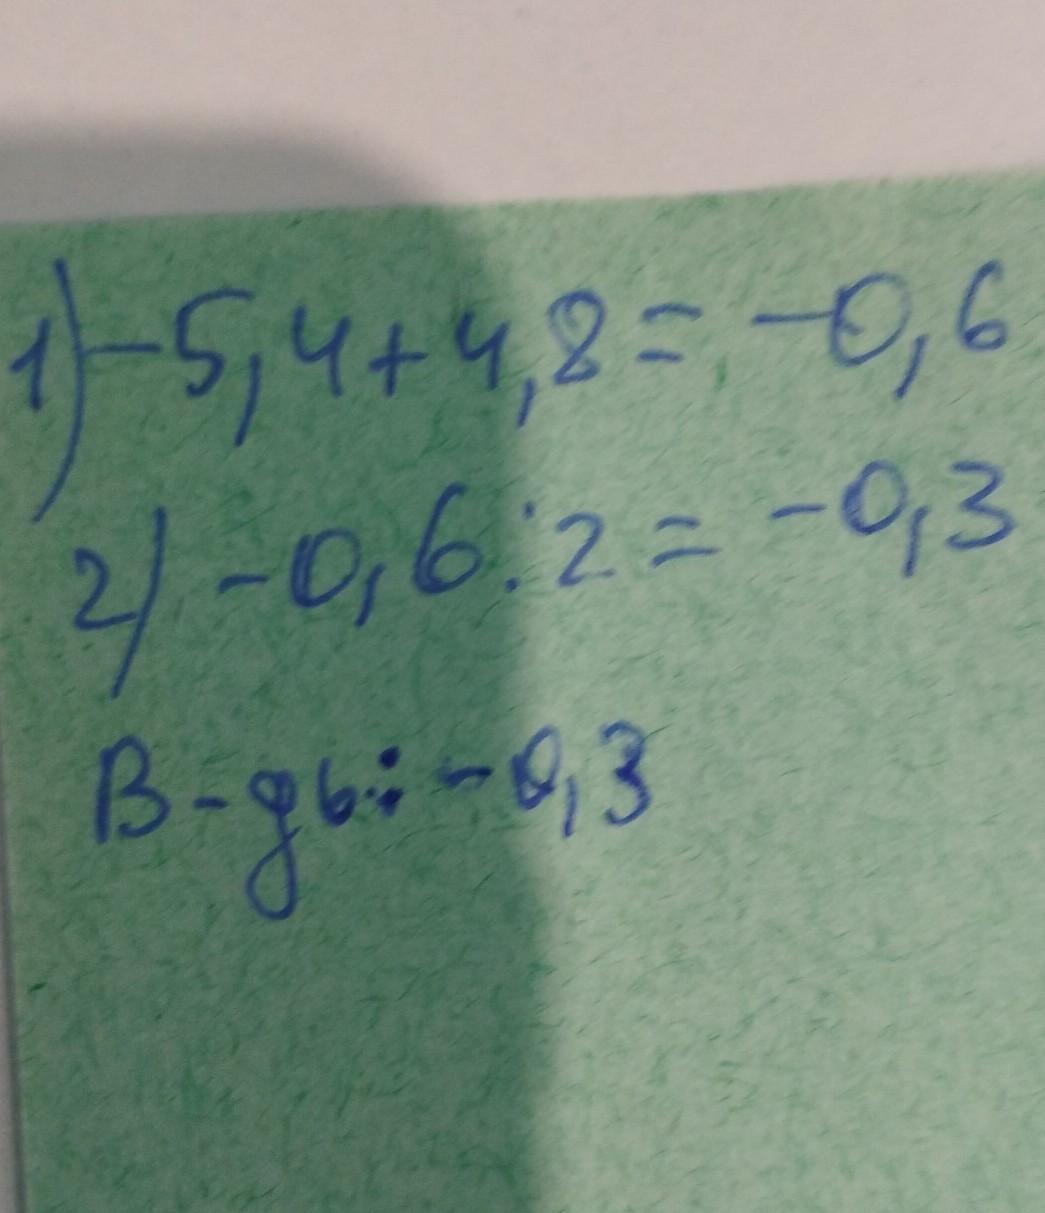 1) -5,4+4,8= -0,6
2) -0,6:2= -0,3
В-дь: -0,3